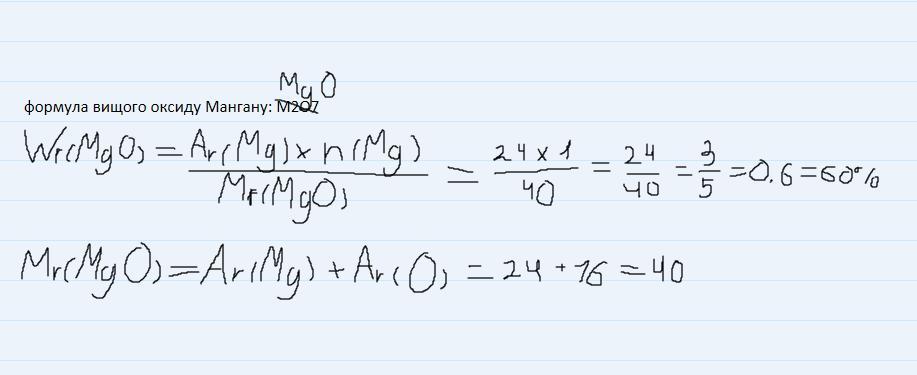 MgO
формула вищого оксиду Мангану: M2O7
Wr(MgO) = Ar(Mg) x n(Mg) / Mr(MgO) = 24 x 1 / 40 = 24 / 40 = 3 / 5 = 0.6 = 60%
Mr(MgO) = Ar(Mg) + Ar(O) = 24 + 16 = 40